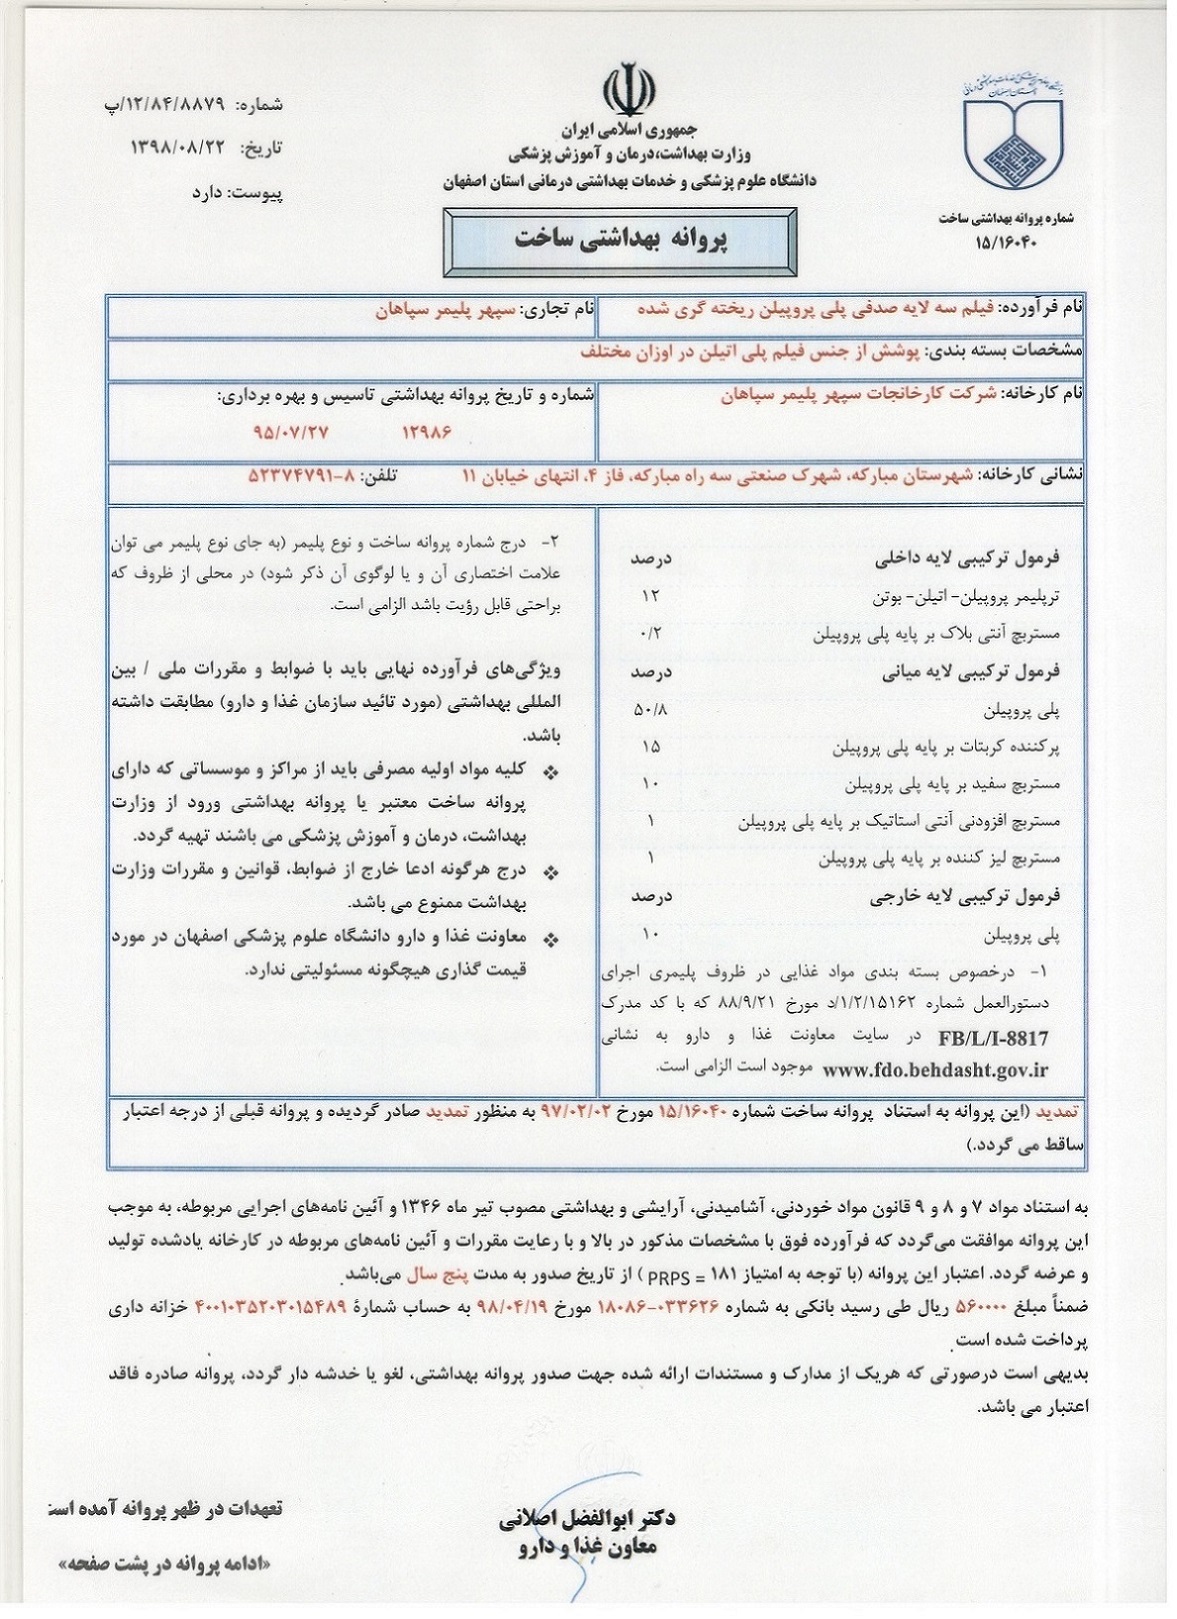 جمهوری اسلامی ایران
وزارت بهداشت،درمان و آموزش پزشکی
دانشگاه علوم پزشکی و خدمات بهداشتی درمانی استان اصفهان
پروانه بهداشتی ساخت
شماره پروانه بهداشتی ساخت
۱۵/۱۶۰۴۰
شماره: ۱۲/۸۴/۸۸۷۹/پ
تاریخ: ۱۳۹۸/۰۸/۲۲
پیوست: دارد
نام فرآورده: فیلم سه لایه صدفی پلی پروپیلن ریخته گری شده
نام تجاری: سپهر پلیمر سپاهان
مشخصات بسته بندی: پوشش از جنس فیلم پلی اتیلن در اوزان مختلف
نام کارخانه: شرکت کارخانجات سپهر پلیمر سپاهان
شماره و تاریخ پروانه بهداشتی تاسیس و بهره برداری:
۱۲۹۸۶ ۹۵/۰۷/۲۷
نشانی کارخانه: شهرستان مبارکه، شهرک صنعتی سه راه مبارکه، فاز ۴، انتهای خیابان ۱۱ تلفن: ۸-۵۲۳۷۴۷۹۱
فرمول ترکیبی لایه داخلی درصد
ترپلیمر پروپیلن- اتیلن- بوتن ۱۲
مستربچ آنتی بلاک بر پایه پلی پروپیلن ۰/۲
فرمول ترکیبی لایه میانی درصد
پلی پروپیلن ۵۰/۸
پرکننده کربنات بر پایه پلی پروپیلن ۱۵
مستربچ سفید بر پایه پلی پروپیلن ۱۰
مستربچ افزودنی آنتی استاتیک بر پایه پلی پروپیلن ۱
مستربچ لیز کننده بر پایه پلی پروپیلن ۱
فرمول ترکیبی لایه خارجی درصد
پلی پروپیلن ۱۰
۱- درخصوص بسته بندی مواد غذایی در ظروف پلیمری اجرای
دستورالعمل شماره ۱/۲/۱۵۱۶۲/د مورخ ۸۸/۹/۲۱ که با کد مدرک
FB/L/I-8817 در سایت معاونت غذا و دارو به نشانی
www.fdo.behdasht.gov.ir موجود است الزامی است.
۲- درج شماره پروانه ساخت و نوع پلیمر (به جای نوع پلیمر می توان
علامت اختصاری آن و یا لوگوی آن ذکر شود) در محلی از ظروف که
براحتی قابل رؤیت باشد الزامی است.
ویژگی‌های فرآورده نهایی باید با ضوابط و مقررات ملی / بین
المللی بهداشتی (مورد تائید سازمان غذا و دارو) مطابقت داشته
باشد.
❖ کلیه مواد اولیه مصرفی باید از مراکز و موسساتی که دارای
پروانه ساخت معتبر یا پروانه بهداشتی ورود از وزارت
بهداشت، درمان و آموزش پزشکی می باشند تهیه گردد.
❖ درج هرگونه ادعا خارج از ضوابط، قوانین و مقررات وزارت
بهداشت ممنوع می باشد.
❖ معاونت غذا و دارو دانشگاه علوم پزشکی اصفهان در مورد
قیمت گذاری هیچگونه مسئولیتی ندارد.
تمدید (این پروانه به استناد پروانه ساخت شماره ۱۵/۱۶۰۴۰ مورخ ۹۷/۰۲/۰۲ به منظور تمدید صادر گردیده و پروانه قبلی از درجه اعتبار
ساقط می گردد.)
به استناد مواد ۷ و ۸ و ۹ قانون مواد خوردنی، آشامیدنی، آرایشی و بهداشتی مصوب تیر ماه ۱۳۴۶ و آئین نامه‌های اجرایی مربوطه، به موجب
این پروانه موافقت می‌گردد که فرآورده فوق با مشخصات مذکور در بالا و با رعایت مقررات و آئین نامه‌های مربوطه در کارخانه یادشده تولید
و عرضه گردد. اعتبار این پروانه (با توجه به امتیاز ۱۸۱ = PRPS ) از تاریخ صدور به مدت پنج سال می‌باشد.
ضمناً مبلغ ۵۶۰۰۰۰ ریال طی رسید بانکی به شماره ۰۳۳۶۲۶-۱۸۰۸۶ مورخ ۹۸/۰۴/۱۹ به حساب شمارهٔ ۴۰۰۱۰۳۵۲۰۳۰۱۵۴۸۹ خزانه داری
پرداخت شده است.
بدیهی است درصورتی که هریک از مدارک و مستندات ارائه شده جهت صدور پروانه بهداشتی، لغو یا خدشه دار گردد، پروانه صادره فاقد
اعتبار می باشد.
دکتر ابوالفضل اصلانی
معاون غذا و دارو
تعهدات در ظهر پروانه آمده است
«ادامه پروانه در پشت صفحه»